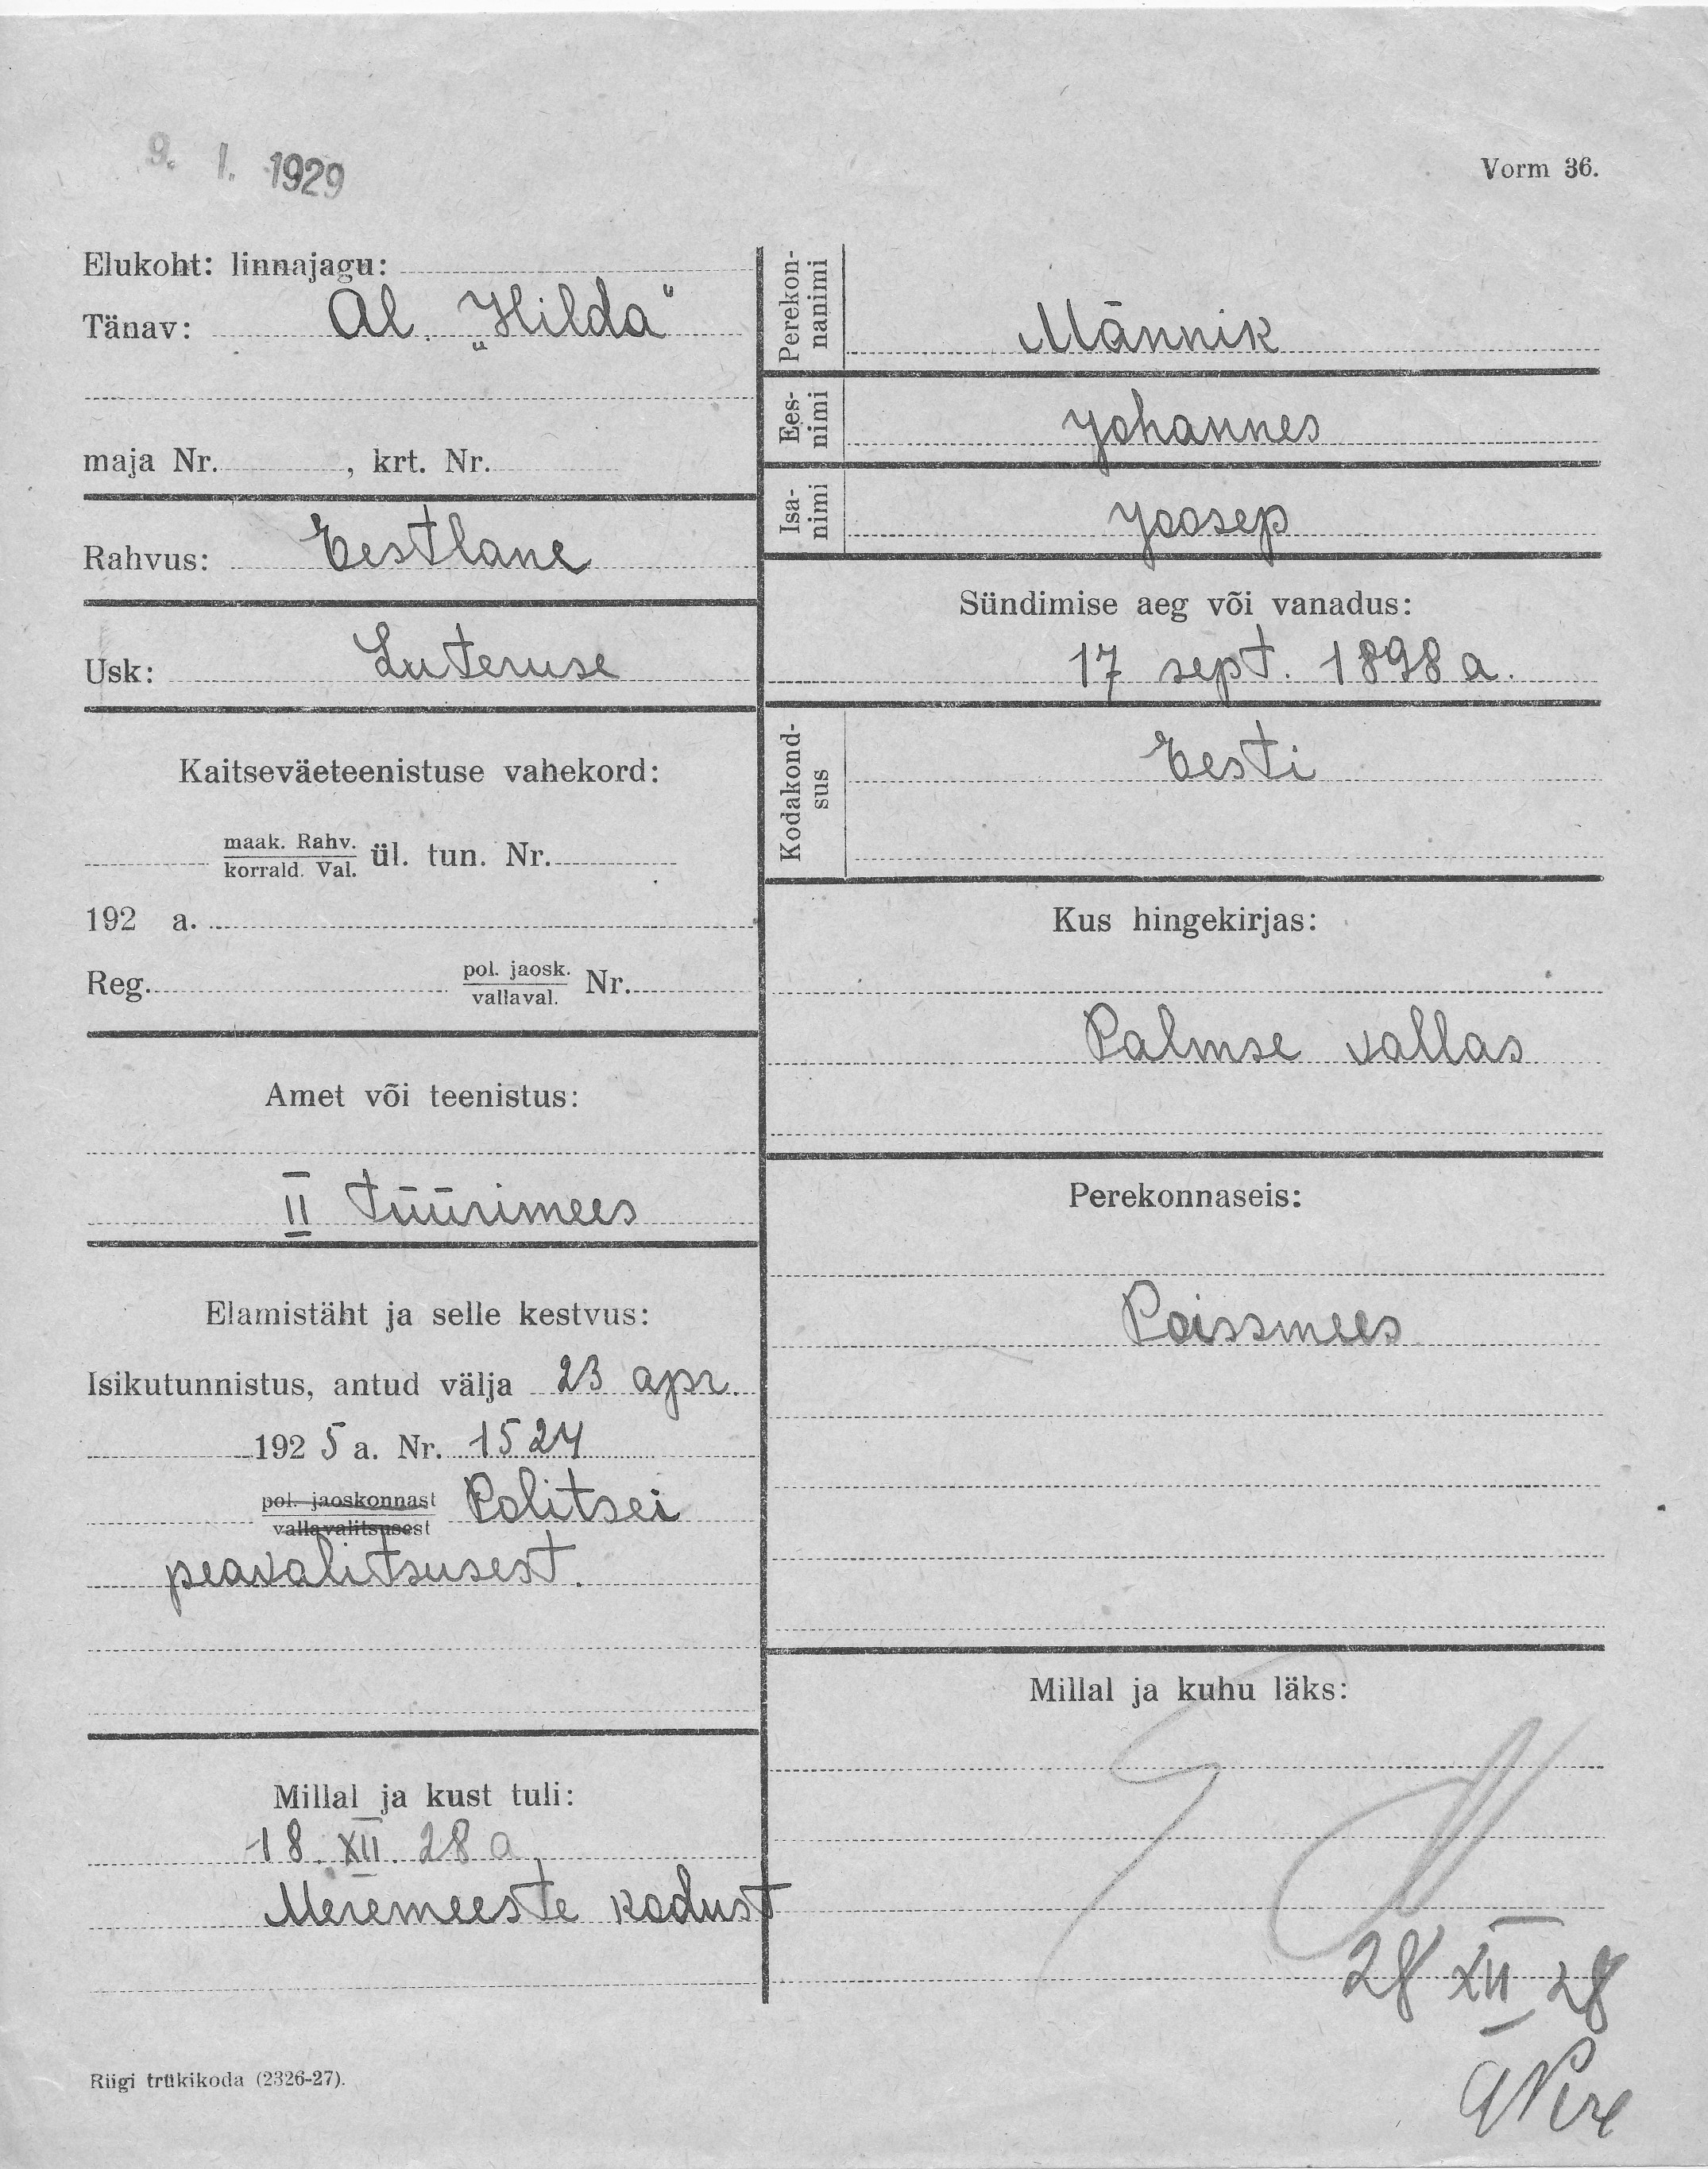 9. I. 1929
Vorm 36.
Elukoht: linnajagu:
Tänav: Al. „Hilda“
maja Nr. , krt. Nr.
Rahvus: Eestlane
Usk: Luteruse
Kaitseväeteenistuse vahekord:
maak. Rahv.
korrald. Val. ül. tun. Nr.
192 a.
Reg. pol. jaosk.
vallaval. Nr.
Amet või teenistus:
II Tüürimees
Elamistäht ja selle kestvus:
Isikutunnistus, antud välja 23 apr.
1925 a. Nr. 1524
pol. jaoskonnast
vallavalitsusest Politsei
peavalitsusest.
Millal ja kust tuli:
18. XII. 28 a.
Meremeeste kodust
Riigi trükikoda (2326-27).
Perekon-
nanimi
Männik
Ees-
nimi
Johannes
Isa-
nimi
Joosep
Sündimise aeg või vanadus:
17 sept. 1898 a.
Kodakond-
sus
Eesti
Kus hingekirjas:
Palmse vallas
Perekonnaseis:
Poissmees
Millal ja kuhu läks:
28 XII 28